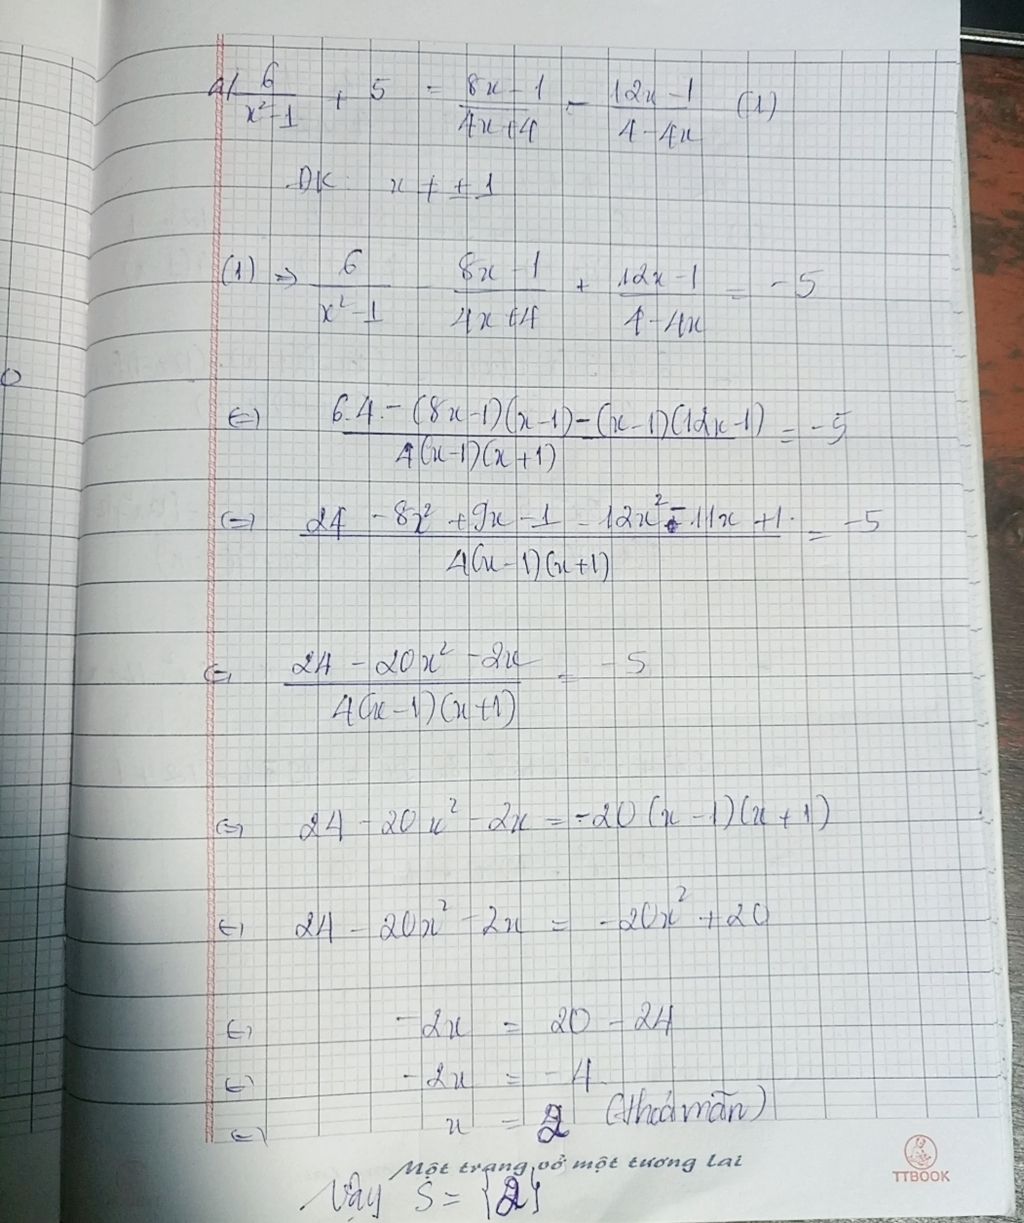 a/ 6/(x²-1) + 5 = (8x-1)/(4x+4) - (12x-1)/(4-4x) (1)
ĐK: x ≠ ±1
(1) => 6/(x²-1) - (8x-1)/(4x+4) + (12x-1)/(4-4x) = -5
(=) (6.4.-(8x-1)(x-1)-(x-1)(12x-1))/(4(x-1)(x+1)) = -5
(=) (24 -8x² +9x -1 -12x² -11x +1.)/(4(x-1)(x+1)) = -5
(=) (24 -20x² -2x)/(4(x-1)(x+1)) = -5
(=) 24 -20x² -2x = -20(x-1)(x+1)
(=) 24 - 20x² - 2x = -20x² +20
(=) -2x = 20 -24
(=) -2x = -4
(=) x = 2 (thoả mãn)
Một trang vở một tương lai
TTBOOK
Vậy S = {2}